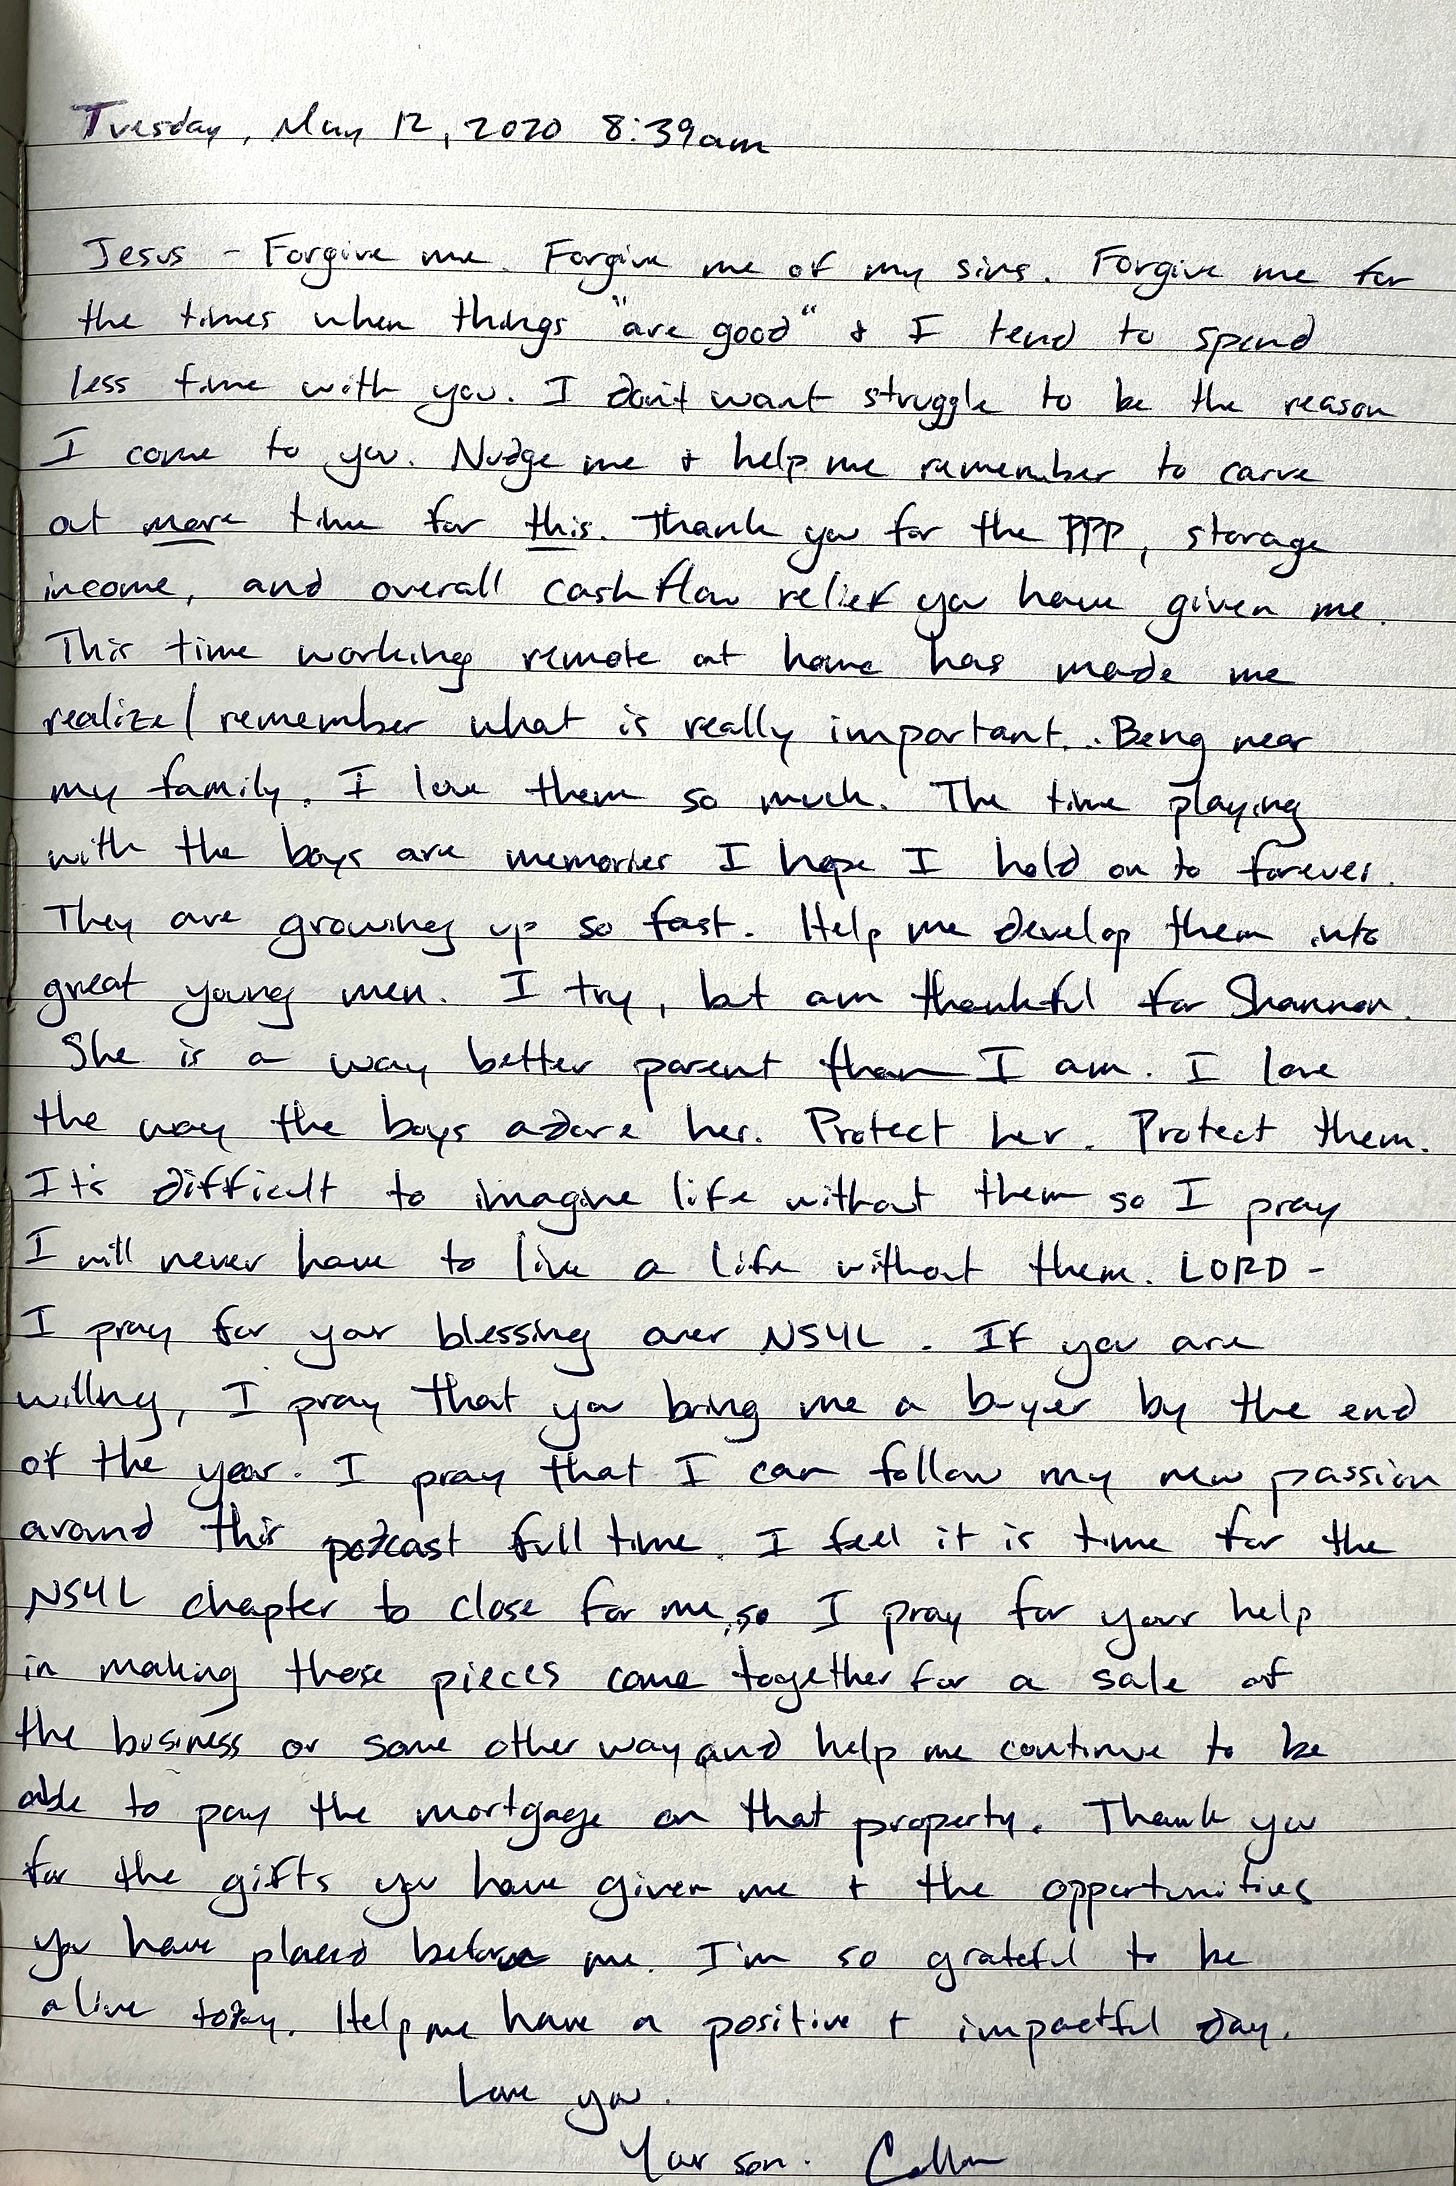 Tuesday, May 12, 2020 8:39am
Jesus - Forgive me. Forgive me of my sins. Forgive me for
the times when things "are good" & I tend to spend
less time with you. I don't want struggle to be the reason
I come to you. Nudge me & help me remember to carve
out more time for this. Thank you for the PPP, storage
income, and overall cashflow relief you have given me.
This time working remote at home has made me
realize/remember what is really important... Being near
my family. I love them so much. The time playing
with the boys are memories I hope I hold on to forever.
They are growing up so fast. Help me develop them into
great young men. I try, but am thankful for Shannon.
She is a way better parent than I am. I love
the way the boys adore her. Protect her. Protect them.
It's difficult to imagine life without them so I pray
I will never have to live a life without them. LORD -
I pray for your blessing over NS4L. If you are
willing, I pray that you bring me a buyer by the end
of the year. I pray that I can follow my new passion
around this podcast full time. I feel it is time for the
NS4L chapter to close for me, so I pray for your help
in making those pieces come together for a sale of
the business or some other way and help me continue to be
able to pay the mortgage on that property. Thank you
for the gifts you have given me + the opportunities
you have placed before me. I'm so grateful to be
alive today. Help me have a positive + impactful day.
Love you.
Your son.